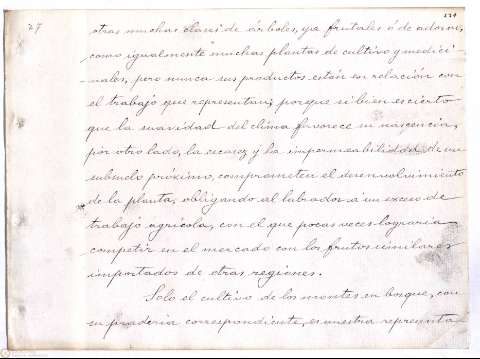 27
otras muchas clases de árboles, ya frutales ó de adorno,
como igualmente muchas plantas de cultivo y medici-
nales, pero nunca sus productos están en relación con
el trabajo que representan; porque si bien es cierto
que la suavidad del clima favorece su nascencia,
por otro lado, la escasez y la impermeabilidad de un
subsuelo próximo, comprometen el desenvolvimiento
de la planta, obligando al labrador a un exceso de
trabajo agrícola, con el que pocas veces lograria
competir en el mercado con los frutos similares
importados de otras regiones.
Solo el cultivo de los montes en bosque, con
su pradería correspondiente, es nuestra representa-